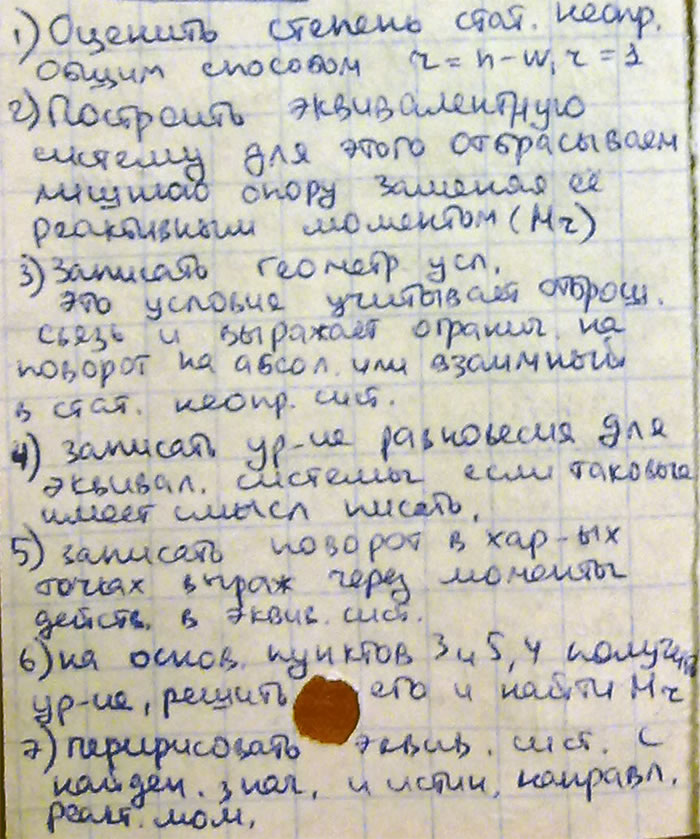 1) Оценить степень стат. неопр.
Общим способом r = n - w, r = 1
2) Построить эквивалентную
систему для этого отбрасываем
лишнюю опору заменяя её
реактивным моментом (Mr)
3) Записать геометр усл.
Это условие учитывает отброш.
связь и выражает огранич. на
поворот на абсол. или взаимный
в стат. неопр. сист.
4) Записать ур-ие равновесия для
эквивал. системы если таковые
имеет смысл писать.
5) Записать поворот в хар-ых
точках выраж через моменты
действ. в эквив. сист.
6) на основ. пунктов 3 и 5, 4 получить
ур-ие, решить его и найти Mr
7) перирисовать эквив. сист. с
найден. знач. и истин. направл.
реакт. мом.